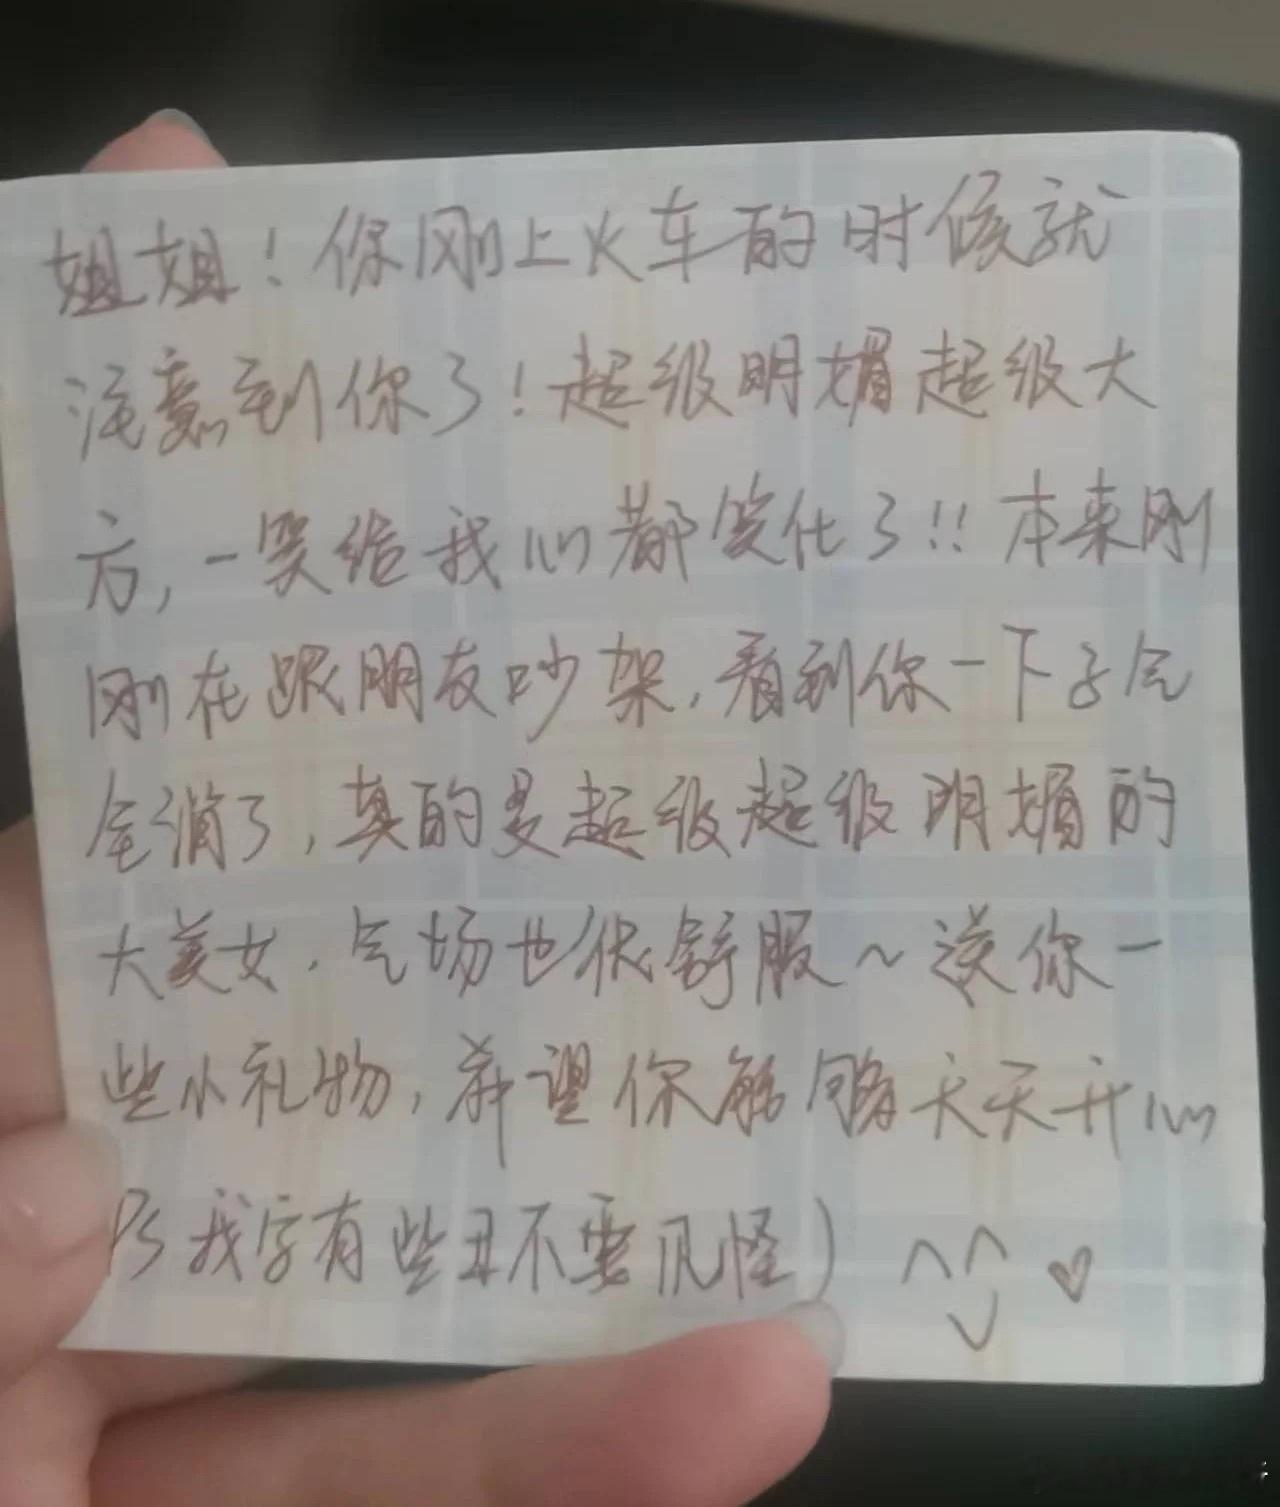 姐姐！你刚上火车的时候就
注意到你了！超级明媚超级大
方，一笑给我心都笑化了!! 本来刚
刚在跟朋友吵架，看到你一下子气
全消了，真的是超级超级明媚的
大美女，气场也很舒服～送你一
些小礼物，希望你能够天天开心
PS我字有些丑不要见怪）